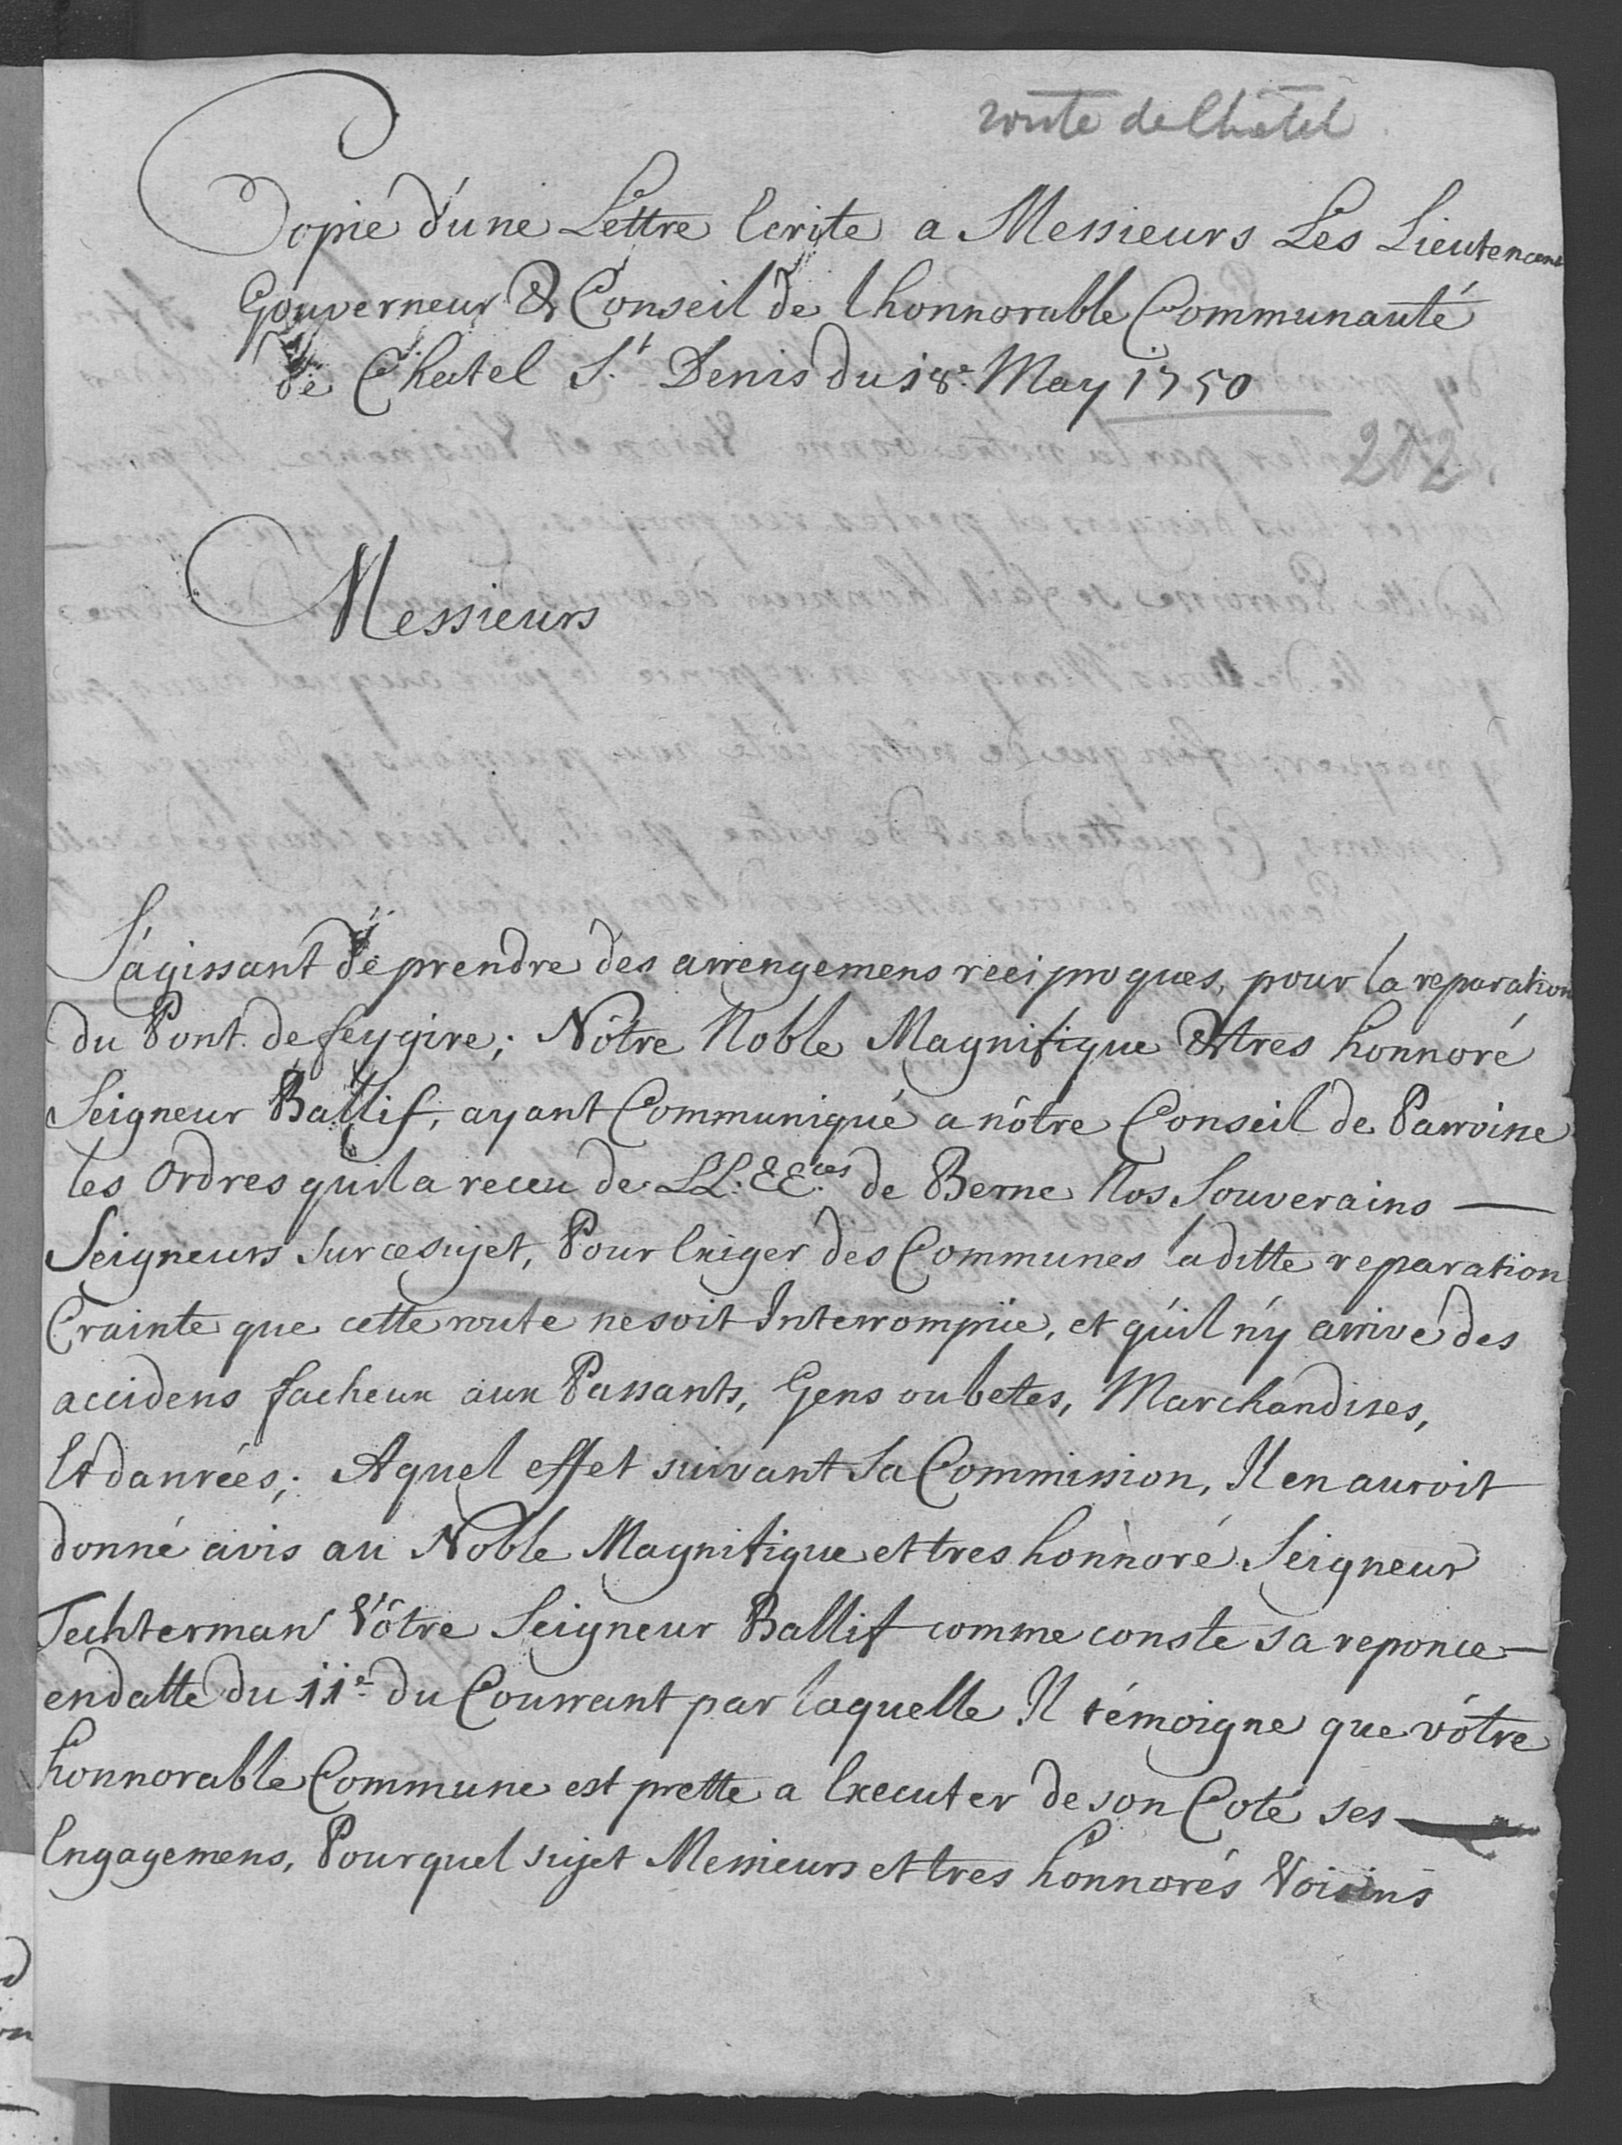 route de Châtel
Copie d'une Lettre Ecrite a Messieurs Les Lieutenant
Gouverneur & Conseil de l honnorable Communauté
de Chatel S.t Denis du 18.e May 1750
212
Messieurs
S'agissant de prendre des arrengemens reciproques, pour la reparation
du Pont de feygire; Nôtre Noble Magnifique & tres honnoré
Seigneur Ballif, ayant Communiqué a nôtre Conseil de Parroisse
les Ordres quil a receu de LL.EE.ces de Berne Nos Souverains —
Seigneurs sur ce sujet, Pour Exiger des Communes laditte reparation
Crainte que cette route ne soit Interrompüe, et qu'il n'y arrive des
accidens facheux aux Passants, Gens ou betes, Marchandises,
Et danrées; A quel effet suivant sa Commission, Il en auroit
donné avis au Noble Magnifique et tres honnoré Seigneur
Techterman Vôtre Seigneur Ballif comme conste sa reponce —
en datte du 11.e du Courrant par laquelle Il témoigne que vôtre
honnorable Commune est prette a Executer de son Coté ses —
Engagemens, Pour quel sujet Messieurs et tres honnorés Voisins